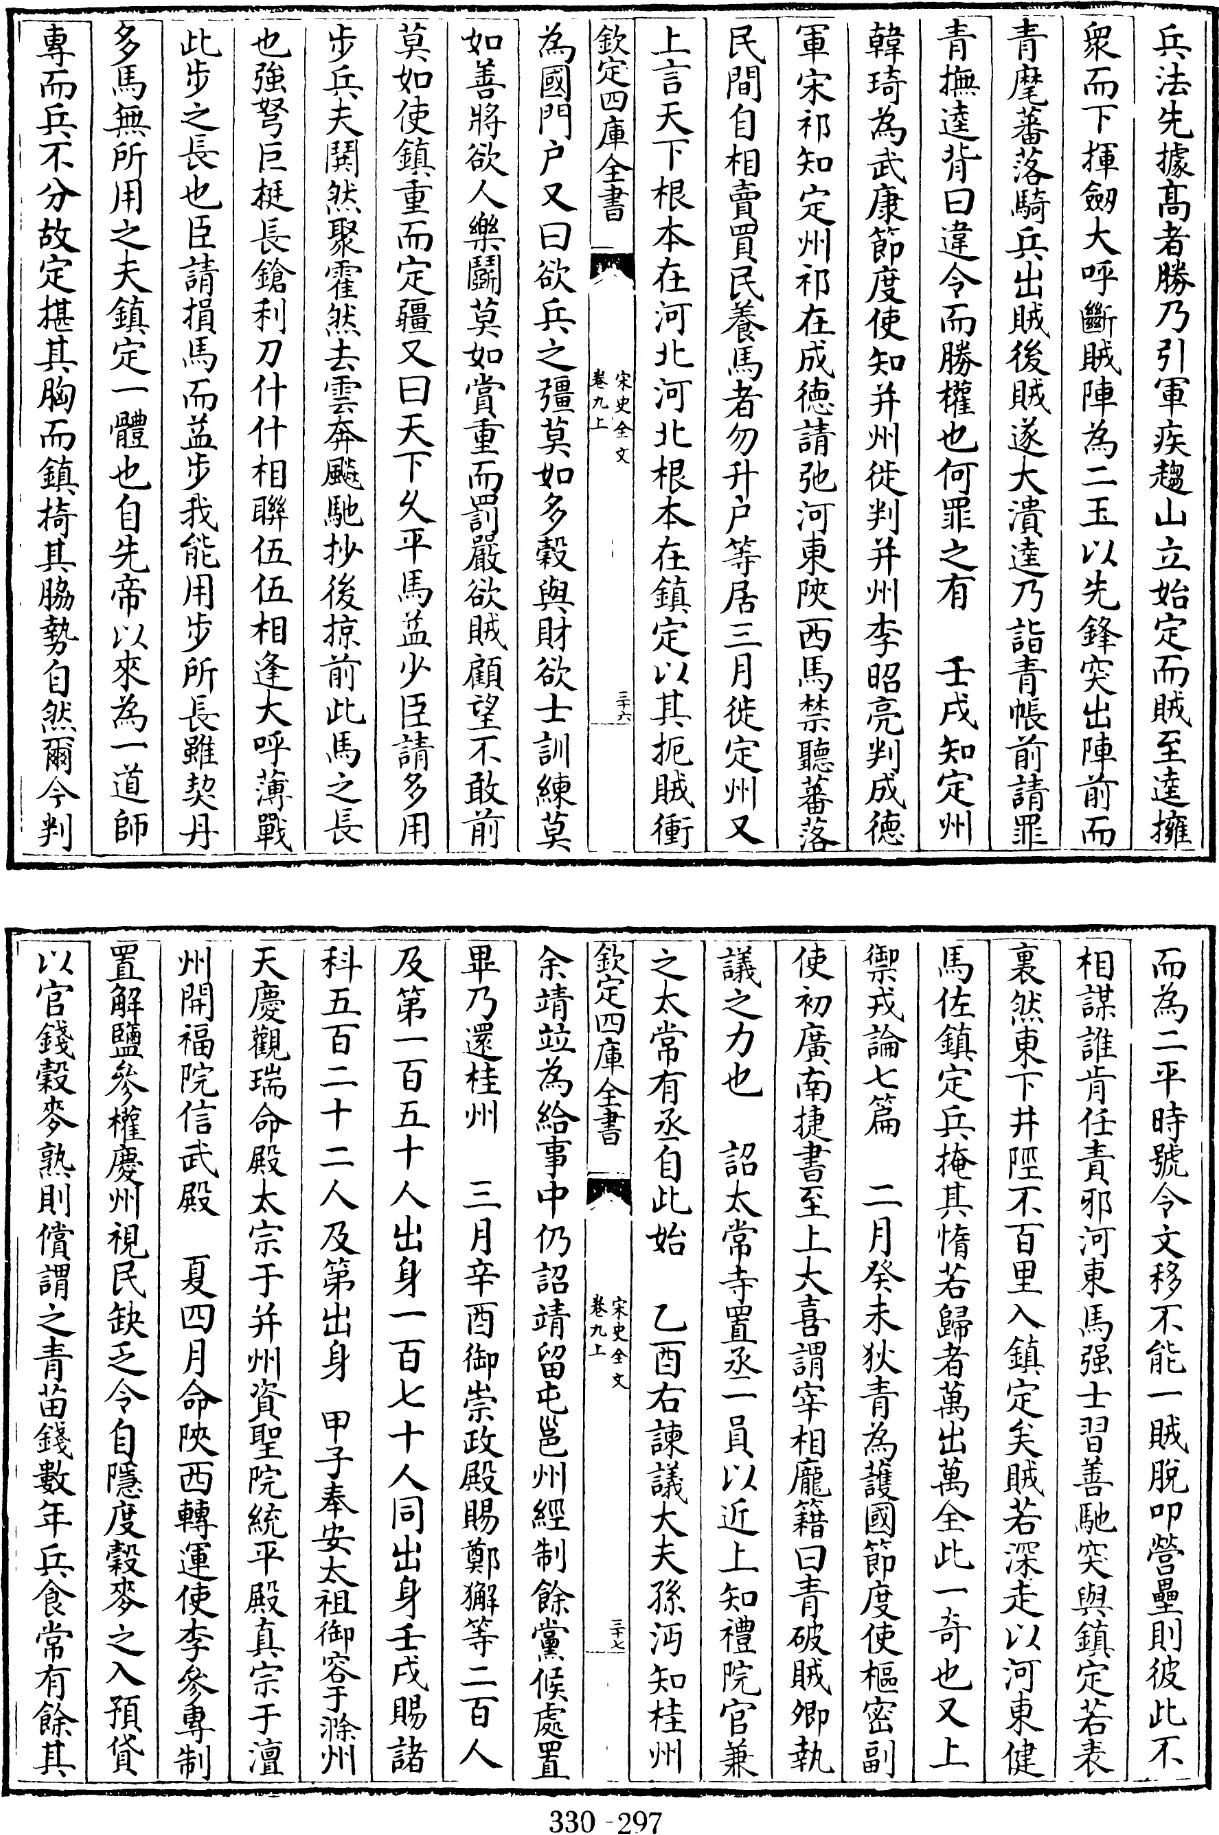 兵法先據髙者勝乃引軍疾趨山立始定而賊至逵擁
衆而下揮劒大呼斷賊陣為二玉以先鋒突出陣前而
青麾蕃落騎兵出賊後賊遂大潰逵乃詣青帳前請罪
青撫逵背曰違令而勝權也何罪之有　壬戌知定州
韓琦為武康節度使知并州徙判并州李昭亮判成德
軍宋祁知定州祁在成徳請弛河東陜西馬禁聽蕃落
民間自相賣買民養馬者勿升户等居三月徙定州又
上言天下根本在河北河北根本在鎮定以其扼賊衝
欽定四庫全書
宋史全文
卷九上
三十六
為國門户又曰欲兵之彊莫如多穀與財欲士訓練莫
如善將欲人樂鬬莫如賞重而罰嚴欲賊顧望不敢前
莫如使鎮重而定彊又曰天下乆平馬益少臣請多用
步兵夫鬨然聚霍然去雲奔飈馳抄後掠前此馬之長
也強弩巨梃長鎗利刀什什相聯伍伍相逢大呼薄戰
此步之長也臣請損馬而益步我能用步所長雖契丹
多馬無所用之夫鎮定一體也自先帝以來為一道師
專而兵不分故定揕其胸而鎮掎其脇勢自然爾今判
而為二平時號令文移不能一賊脫叩營壘則彼此不
相謀誰肯任責邪河東馬强士習善馳突與鎮定若表
裏然東下井陘不百里入鎮定矣賊若深走以河東健
馬佐鎮定兵掩其惰若歸者萬出萬全此一奇也又上
禦戎論七篇　二月癸未狄青為護國節度使樞密副
使初廣南捷書至上大喜謂宰相龐籍曰青破賊卿執
議之力也　詔太常寺置丞一員以近上知禮院官兼
之太常有丞自此始　乙酉右諫議大夫孫沔知桂州
欽定四庫全書
宋史全文
卷九上
三十七
余靖竝為給事中仍詔靖留屯邕州經制餘黨候處置
畢乃還桂州　三月辛酉御崇政殿賜鄭獬等二百人
及第一百五十人出身一百七十人同出身壬戌賜諸
科五百二十二人及第出身　甲子奉安太祖御容于滁州
天慶觀瑞命殿太宗于并州資聖院統平殿真宗于澶
州開福院信武殿　夏四月命陜西轉運使李參專制
置解鹽參權慶州視民缺乏令自隱度穀麥之入預貸
以官錢穀麥熟則償謂之青苗錢數年兵食常有餘其
330-297